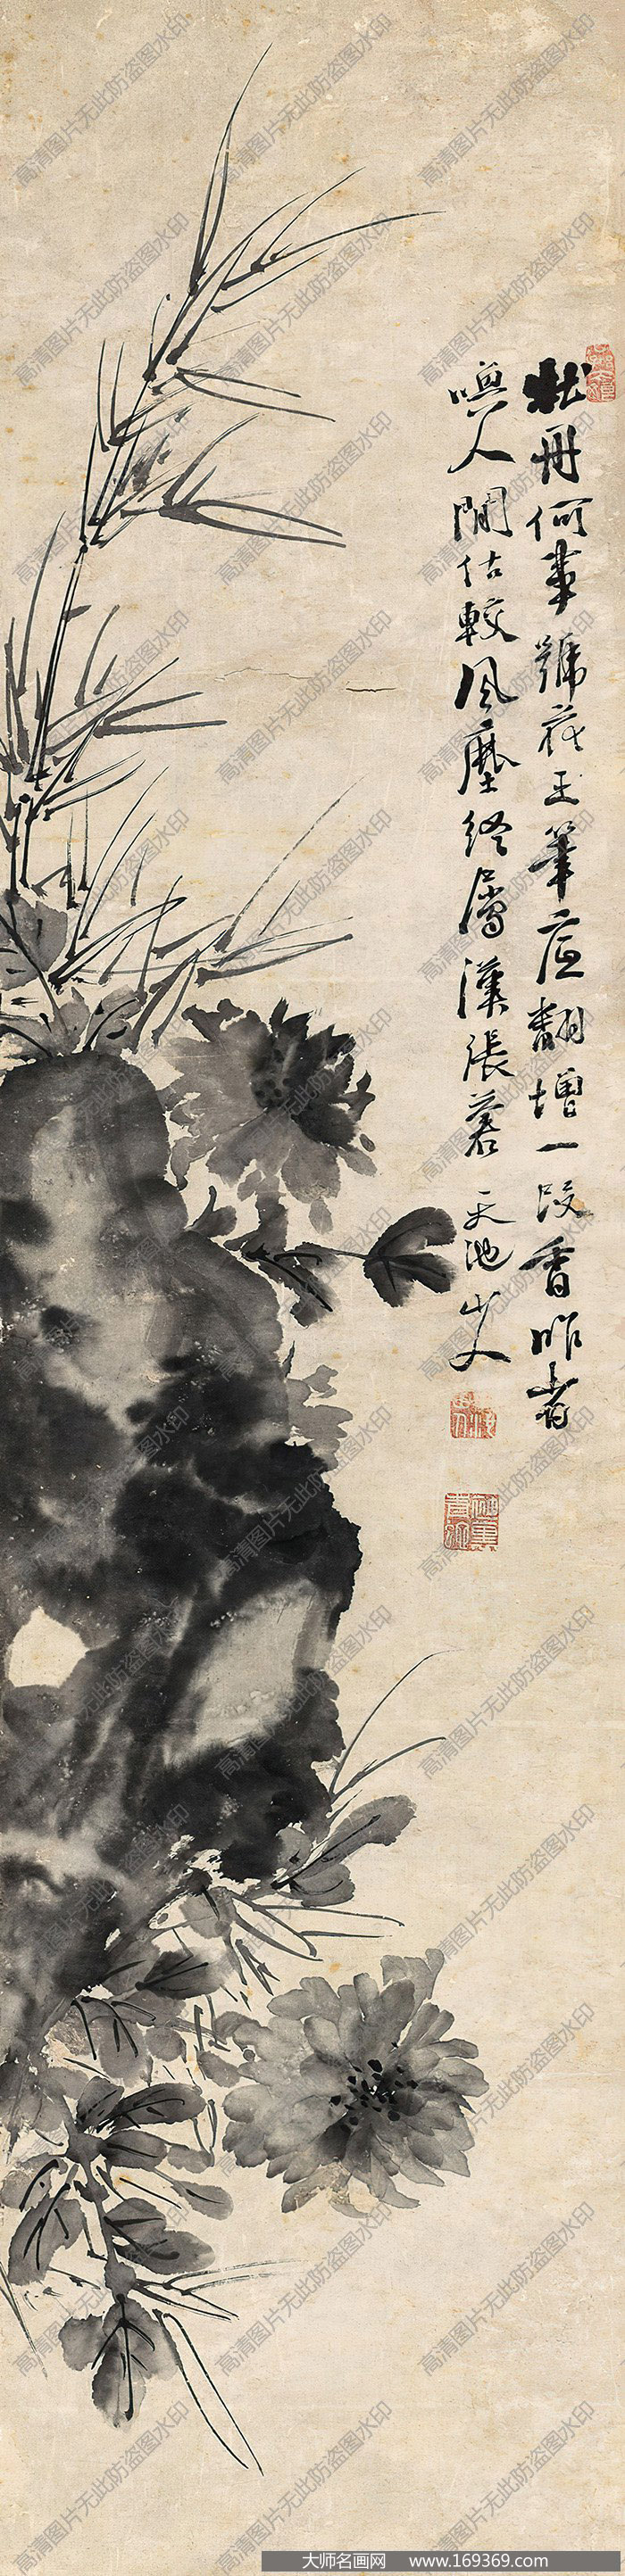 牡丹何事號花王筆底翻增一段香昨者
喚人間估較風塵終屬漢張蒼 天池山人
高清图片无此防盗图水印
大师名画网 www.169369.com